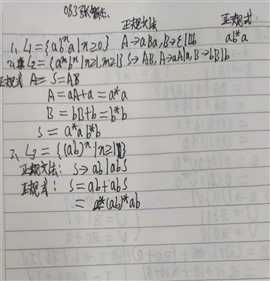 正规文法 正规式
1、L₁={abⁿa|n≥0} A→aBa, B→ε|Bb ab*a
2、L₂={aⁿbᵐ|n≥1,m≥1} S→AB, A→aA|a, B→bB|b
正规式 S=AB
A=aA+a=a*a
B=bB+b=b*b
S=a*ab*b
3、L₃={(ab)ⁿ|n≥1}
正规文法: S→ab|abS
正规式: S=ab+abS
=(ab)*ab